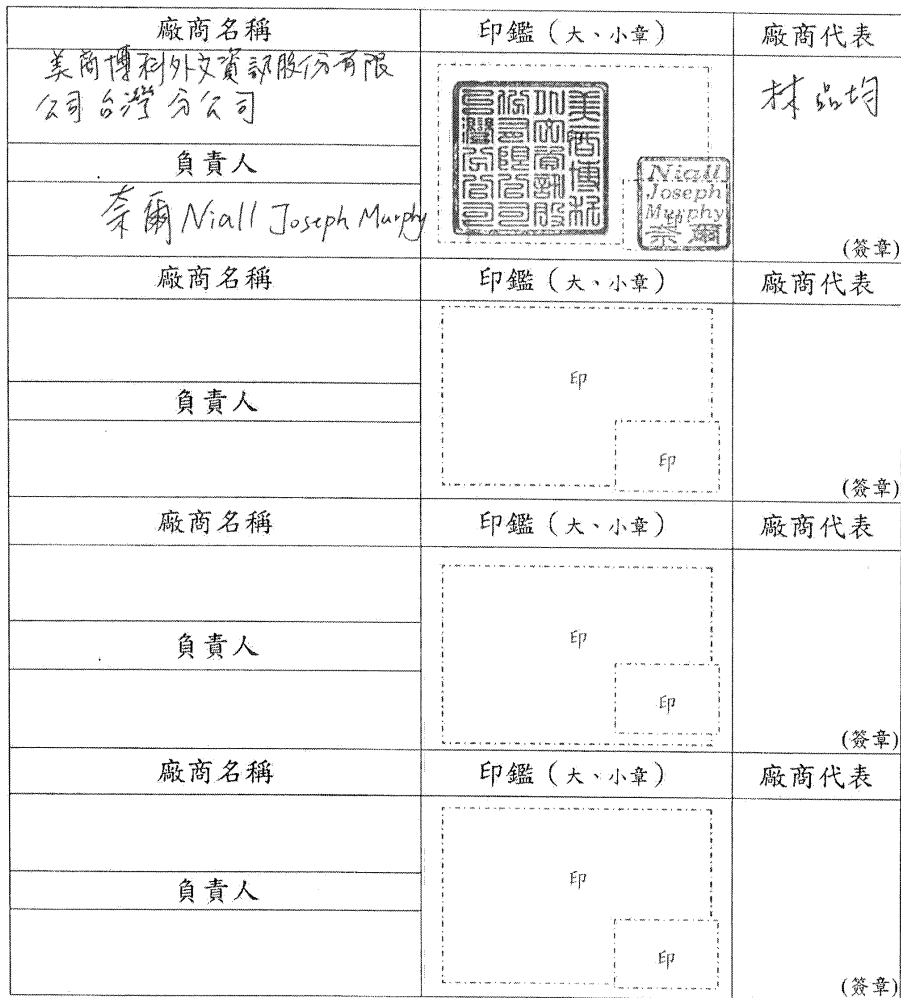 廠商名稱 印鑑（大、小章） 廠商代表
美商博科外文資訊股份有限
公司台灣分公司
林品均
美商博科
外文資訊股
份有限公司
台灣分公司
Niall
Joseph
Murphy
奈爾
負責人
奈爾 Niall Joseph Murphy
(簽章)
廠商名稱 印鑑（大、小章） 廠商代表
印
負責人
印
(簽章)
廠商名稱 印鑑（大、小章） 廠商代表
印
負責人
印
(簽章)
廠商名稱 印鑑（大、小章） 廠商代表
印
負責人
印
(簽章)